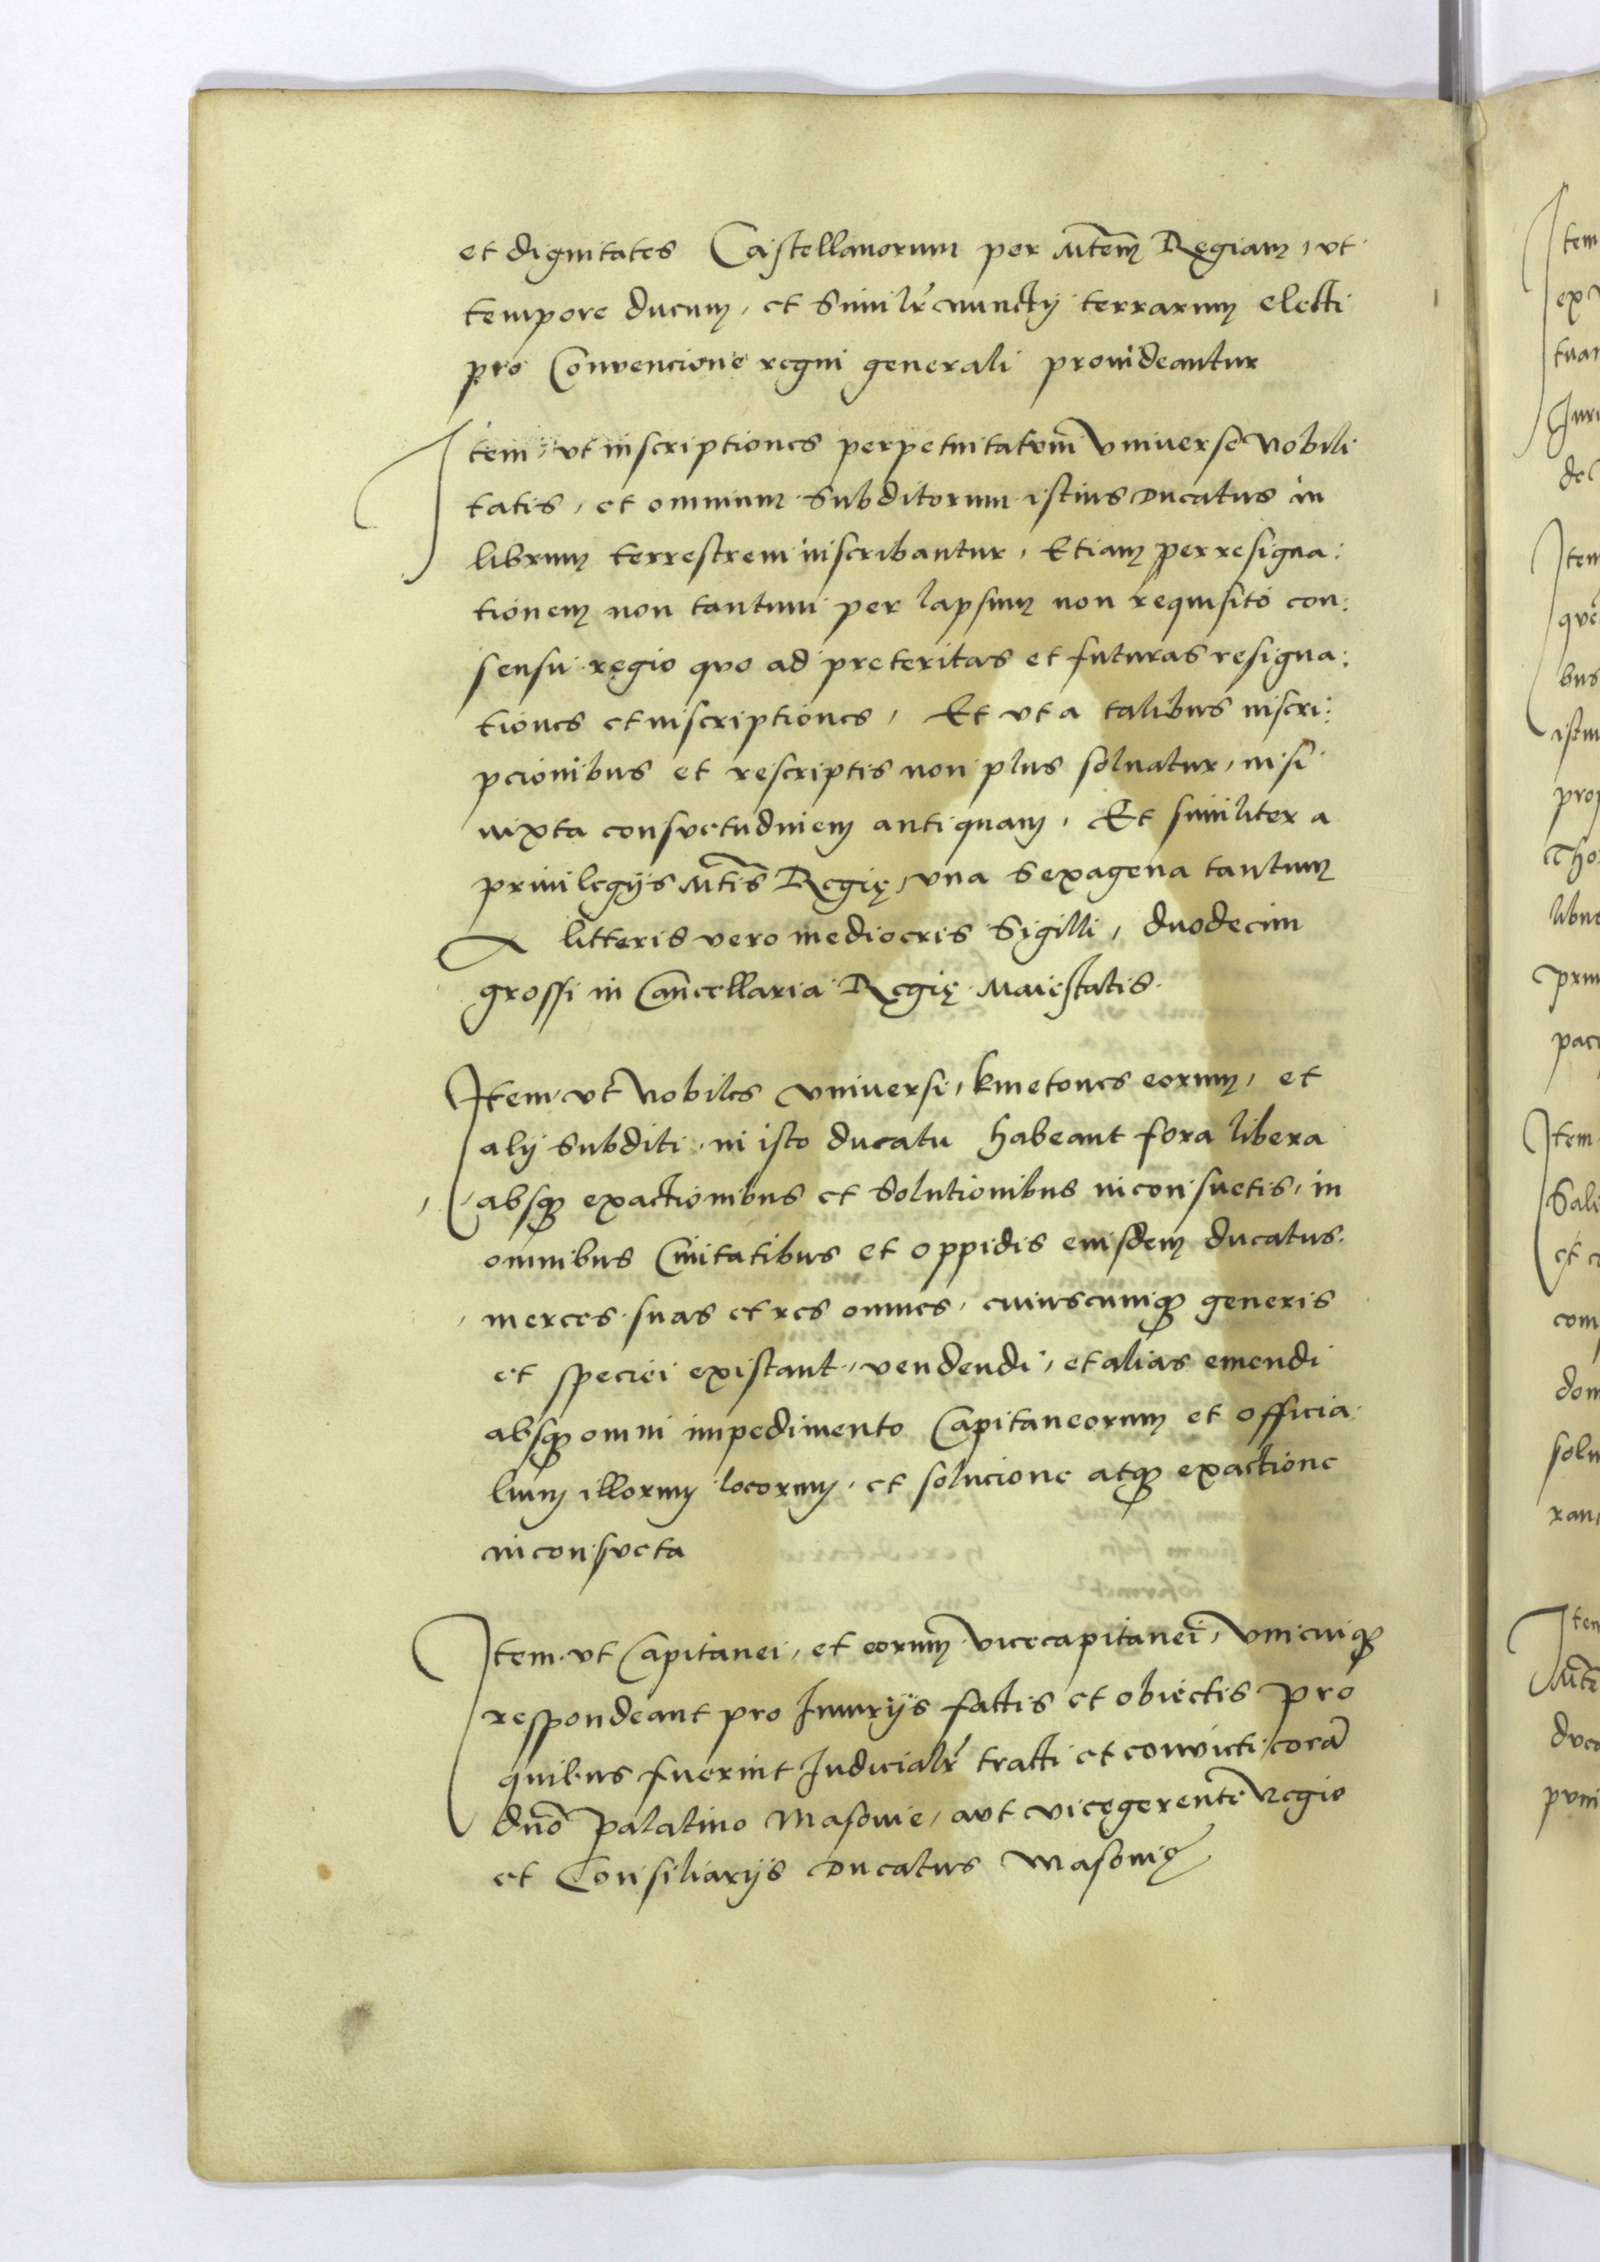 et dignitates Castellanorum per Mtem̄ Regiam, vt
tempore ducum, et Similr̄ nunctij terrarum electi
pro Convencione regni generali provideantur
Item, vt inscriptiones perpetuitatem̄ vniverse Nobili
tatis, et omnium Subditorum istius Ducatus in
librum terrestrem inscribantur, Etiam per resigna:
tionem non tantum per lapsum non requisito con:
sensu regio quo ad preteritas et futuras resigna:
tiones et inscriptiones, Et vt a talibus inscri:
pcionibus et rescriptis non plus soluatur, nisi
iuxta consvetudinem antiquam, Et similiter a
privilegijs Mtis̄ Regię, vna Sexagena tantum
A litteris vero mediocris Sigilli, duodecim
grossi in Cancellaria Regię Maiestatis.
Item vt Nobiles vniversi, kmetones eorum, et
alij Subditi in isto ducatu habeant fora libera
absqȝ exactionibus et Solutionibus inconsuetis, in
omnibus Civitatibus et oppidis eiusdem ducatus.
merces suas et res omnes, cuiuscunqȝ generis
et speciei existant, vendendi, et alias emendi
absqȝ omni impedimento Capitaneorum et officia
lium illorum locorum, et solucione atqȝ exactione
inconsveta
Item vt Capitanei, et eorum vicecapitanei, vnicuiqȝ
respondeant pro Iniurijs factis et obiectis pro
quibus fuerint Iudicialr̄ tracti et convicti, corā
dnō Palatino Masovie, aut vicęgerentē Regio
et Consiliarijs Ducatus Masovię